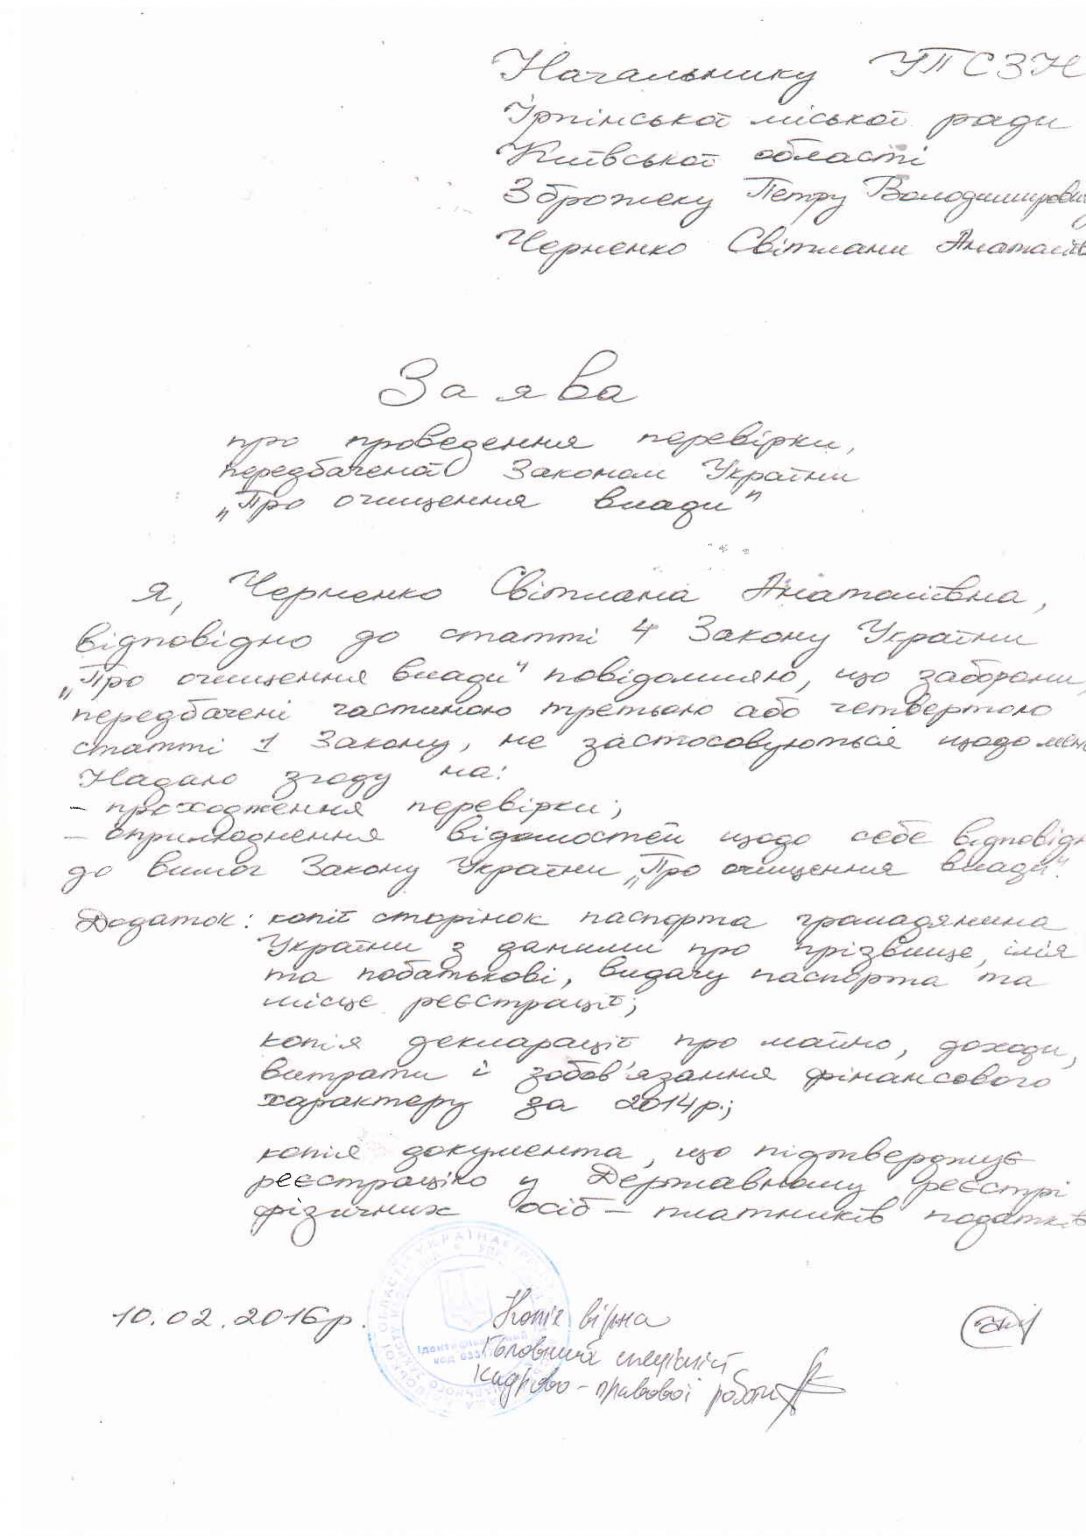 Начальнику УПСЗН
Ірпінської міської ради
Київської області
Зброжеку Петру Володимирович
Черненко Світлани Анатолїв
Заява
про проведення перевірки,
передбаченої Законом України
„Про очищення влади"
Я, Черненко Світлана Анатоліївна,
відповідно до статті 4 Закону України
„Про очищення влади" повідомляю, що заборони,
передбачені частиною третьою або четвертою
статті 1 Закону, не застосовуються щодо мене
Надаю згоду на:
- проходження перевірки;
- оприлюднення відомостей щодо себе відповідн
до вимог Закону України „Про очищення влади".
Додаток: копії сторінок паспорта громадянина
України з даними про прізвище, ім'я
та побатькові, видачу паспорта та
місце реєстрації;
копія декларації про майно, доходи,
витрати і зобов'язання фінансового
характеру за 2014р.;
копія документа, що підтверджує
реєстрацію у Державному реєстрі
фізичних осіб – платників податків
10.02.2016р.
Копія вірна
Головний спеціаліст
кадрово-правової роботи